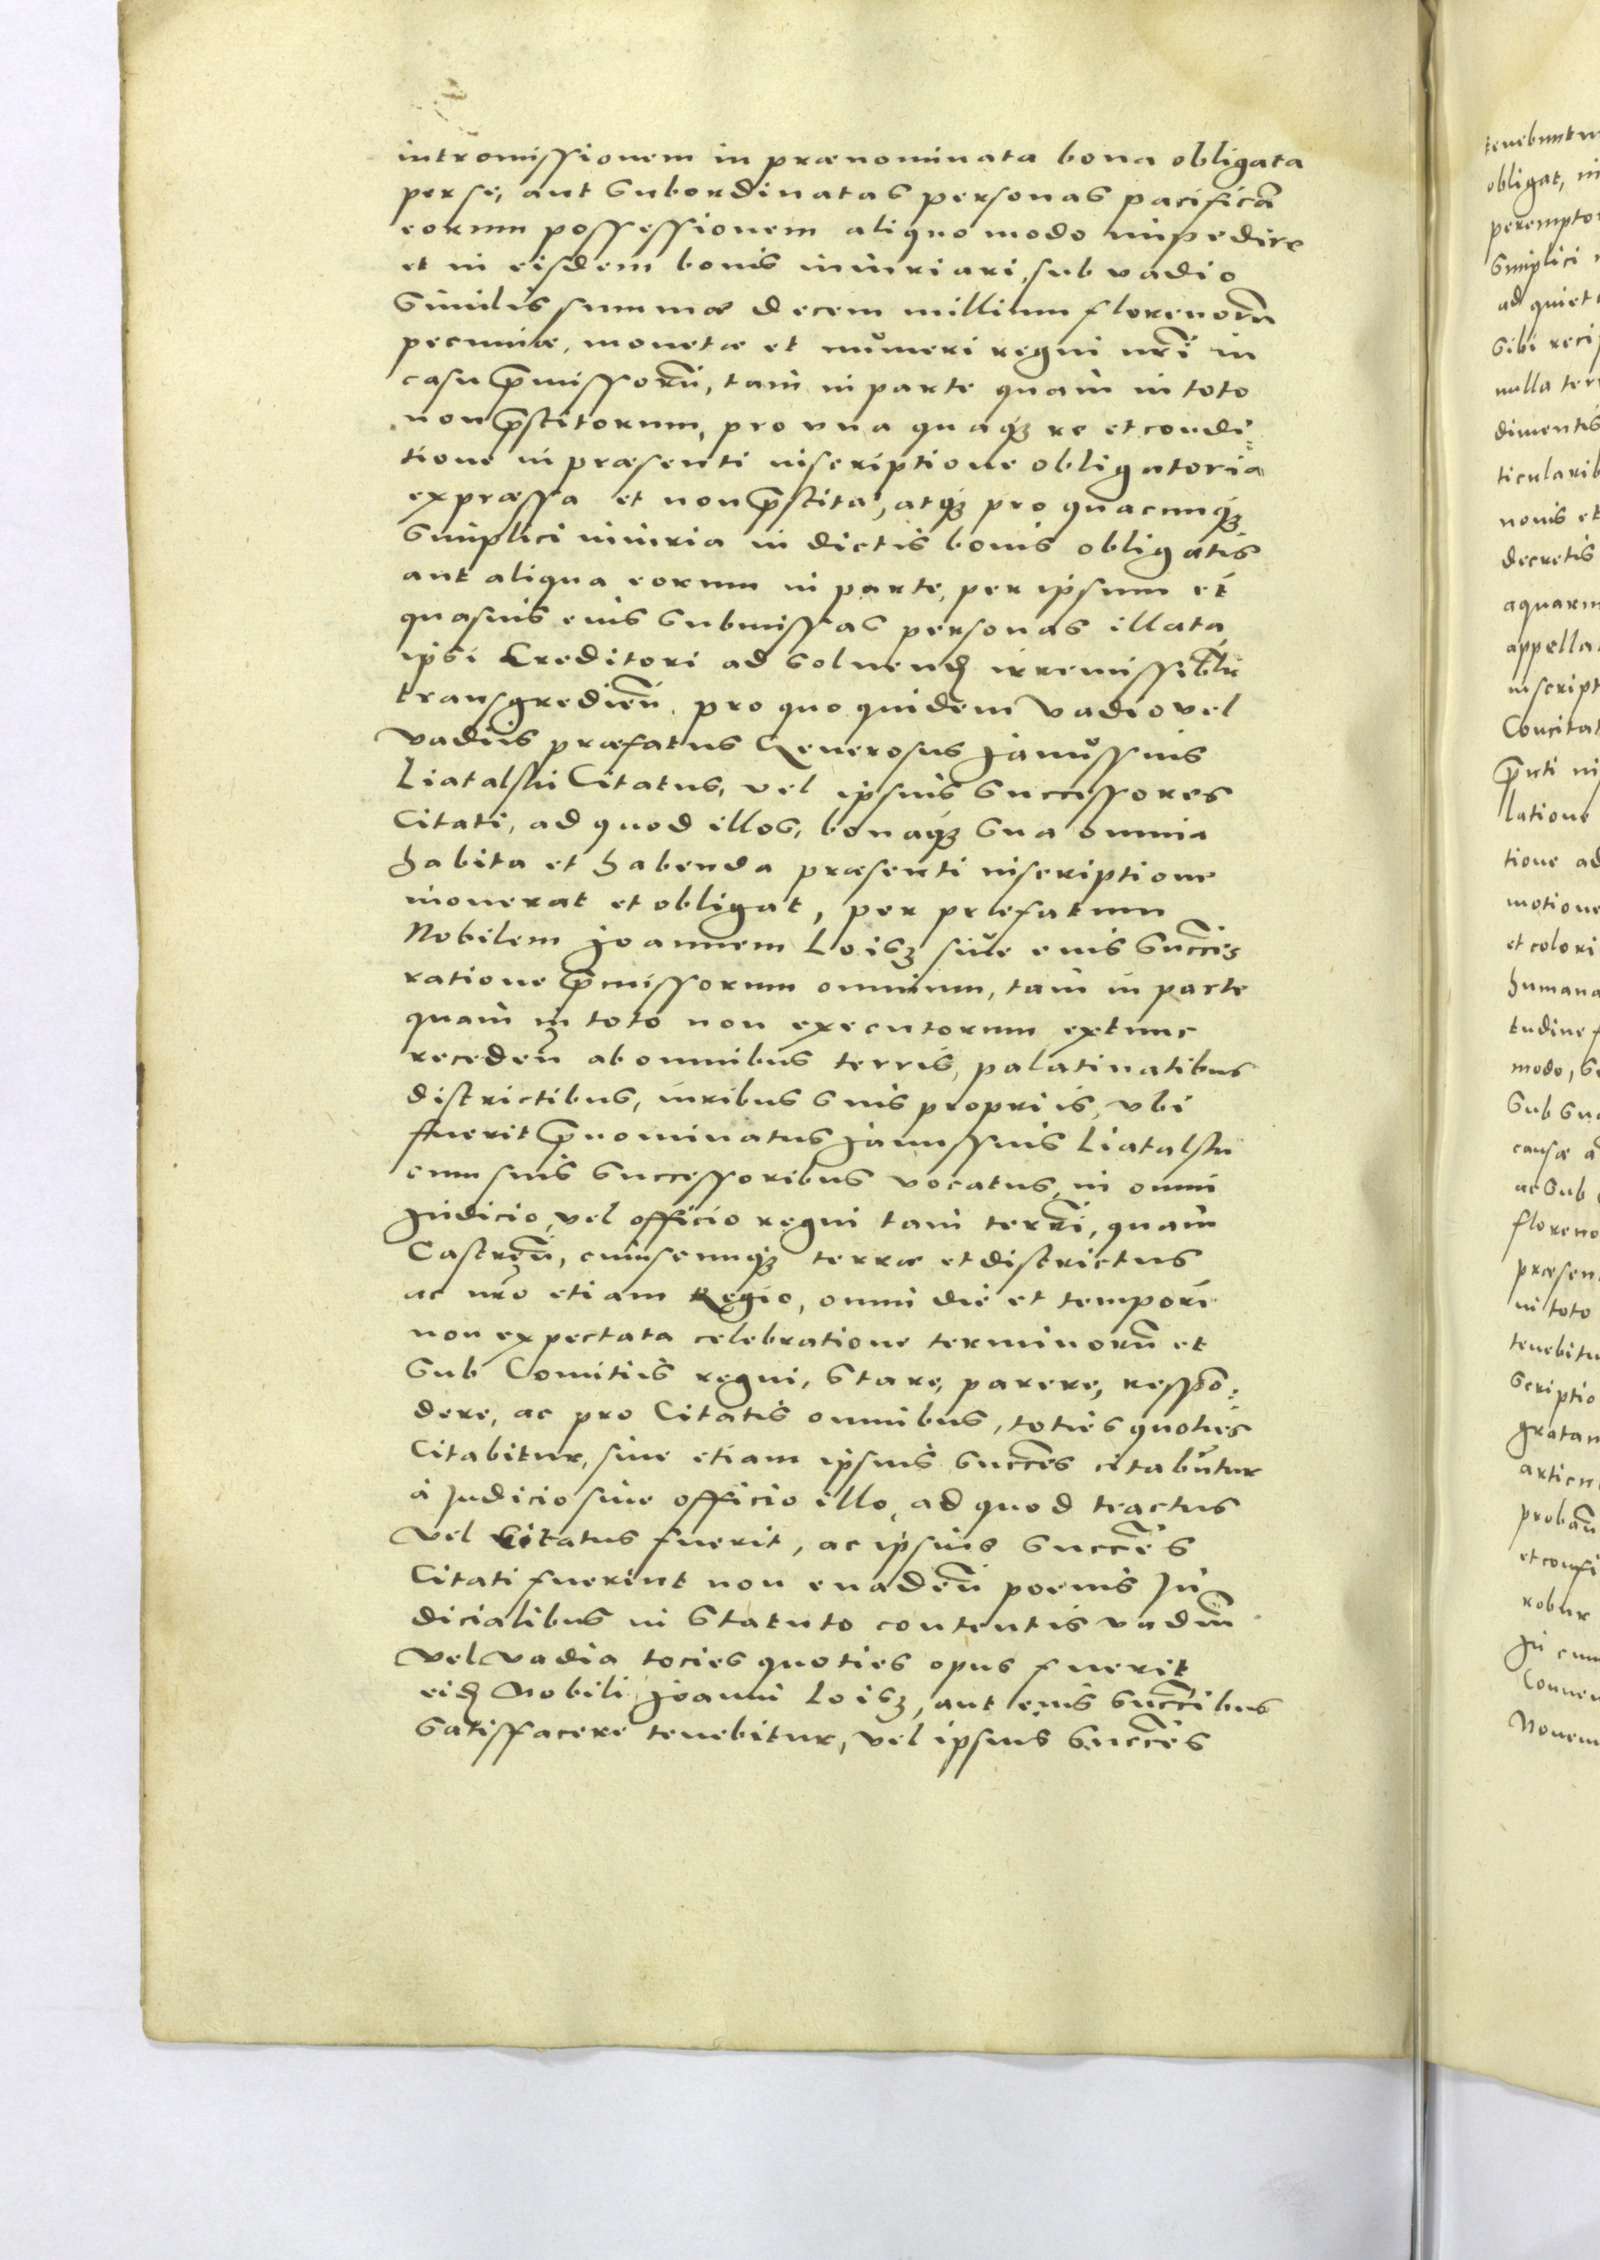 intromissionem in prænominata bona obligata
per se, aut subordinatas personas pacificā
eorum possessionem aliquo modo impedire
et in eisdem bonis iniuriari, sub vadio
similis summæ decem millium florenorū
pecuniæ, monetæ et nŭmeri regni nrī in
casu p̄missorū, tam in parte quam in toto
non p̄stitorum, pro vna quaqȝ re et condi:
tione in præsenti inscriptione obligatoria
expræssa et non p̄stita, atqȝ pro quacunqȝ
simplici iniuria in dictis bonis obligatis
aut aliqua eorum in parte, per ipsum et
quasuis eius submissas personas illata,
ipsi Creditori ad soluend irremissiblr
transgredieñ. pro quo quidem vadio vel
vadiis præfatus Generosus Janŭssius
Liatalski Citatus, vel ipsius successores
Citati, ad quod illos, bonaqȝ sua omnia
habita et habenda præsenti inscriptione
inonerat et obligat, per præfatum
Nobilem Joannem Loisȝ siŭe eius succ̄es
ratione p̄missorum omnium, tam in parte
quam in toto non executorum extunc
recedeñ ab omnibus terris, palatinatibus
districtibus, iuribus suis propriis, vbi
fuerit p̄nominatus Janussius Liatalski
cum suis successoribus vocatus, in omni
Judicio, vel officio regni tam terrī, quam
Castreñ, cuiuscunqȝ terræ et districtus
ac nrō etiam Regio, omni die et tempore
non expectata celebratione terminorū et
sub Comitiis regni, stare, parere, respō:
dere, ac pro Citatis omnibus, toties quoties
Citabitur, siue etiam ipsius succ̄es citabūtur
à Judicio siue officio illo, ad quod tractus
vel Citatus fuerit, ac ipsius succ̄es
Citati fuerint non euadeñ poenis Ju
dicialibus in statuto contentis vadiū
vel vadia tocies quoties opus fuerit
eid Nobili Joanni Loisȝ, aut eius succ̄ibus
satisffacere tenebitur, vel ipsius succ̄es
tenebuntur
obligat, in
simplici
sibi reci
nulla ter
dimentis
ticularib
nouis et
decretis
appella
inscript
Concitat
p̄nti in
latione
tione ad
motione
et colori
humana
tudine
modo, s
sub su
causæ
ac sub
floreno
præsen
in toto
tenebitu
scriptio
gratam
articul
probañ
et confi
robur
In cuiu
Conuen
Nouem